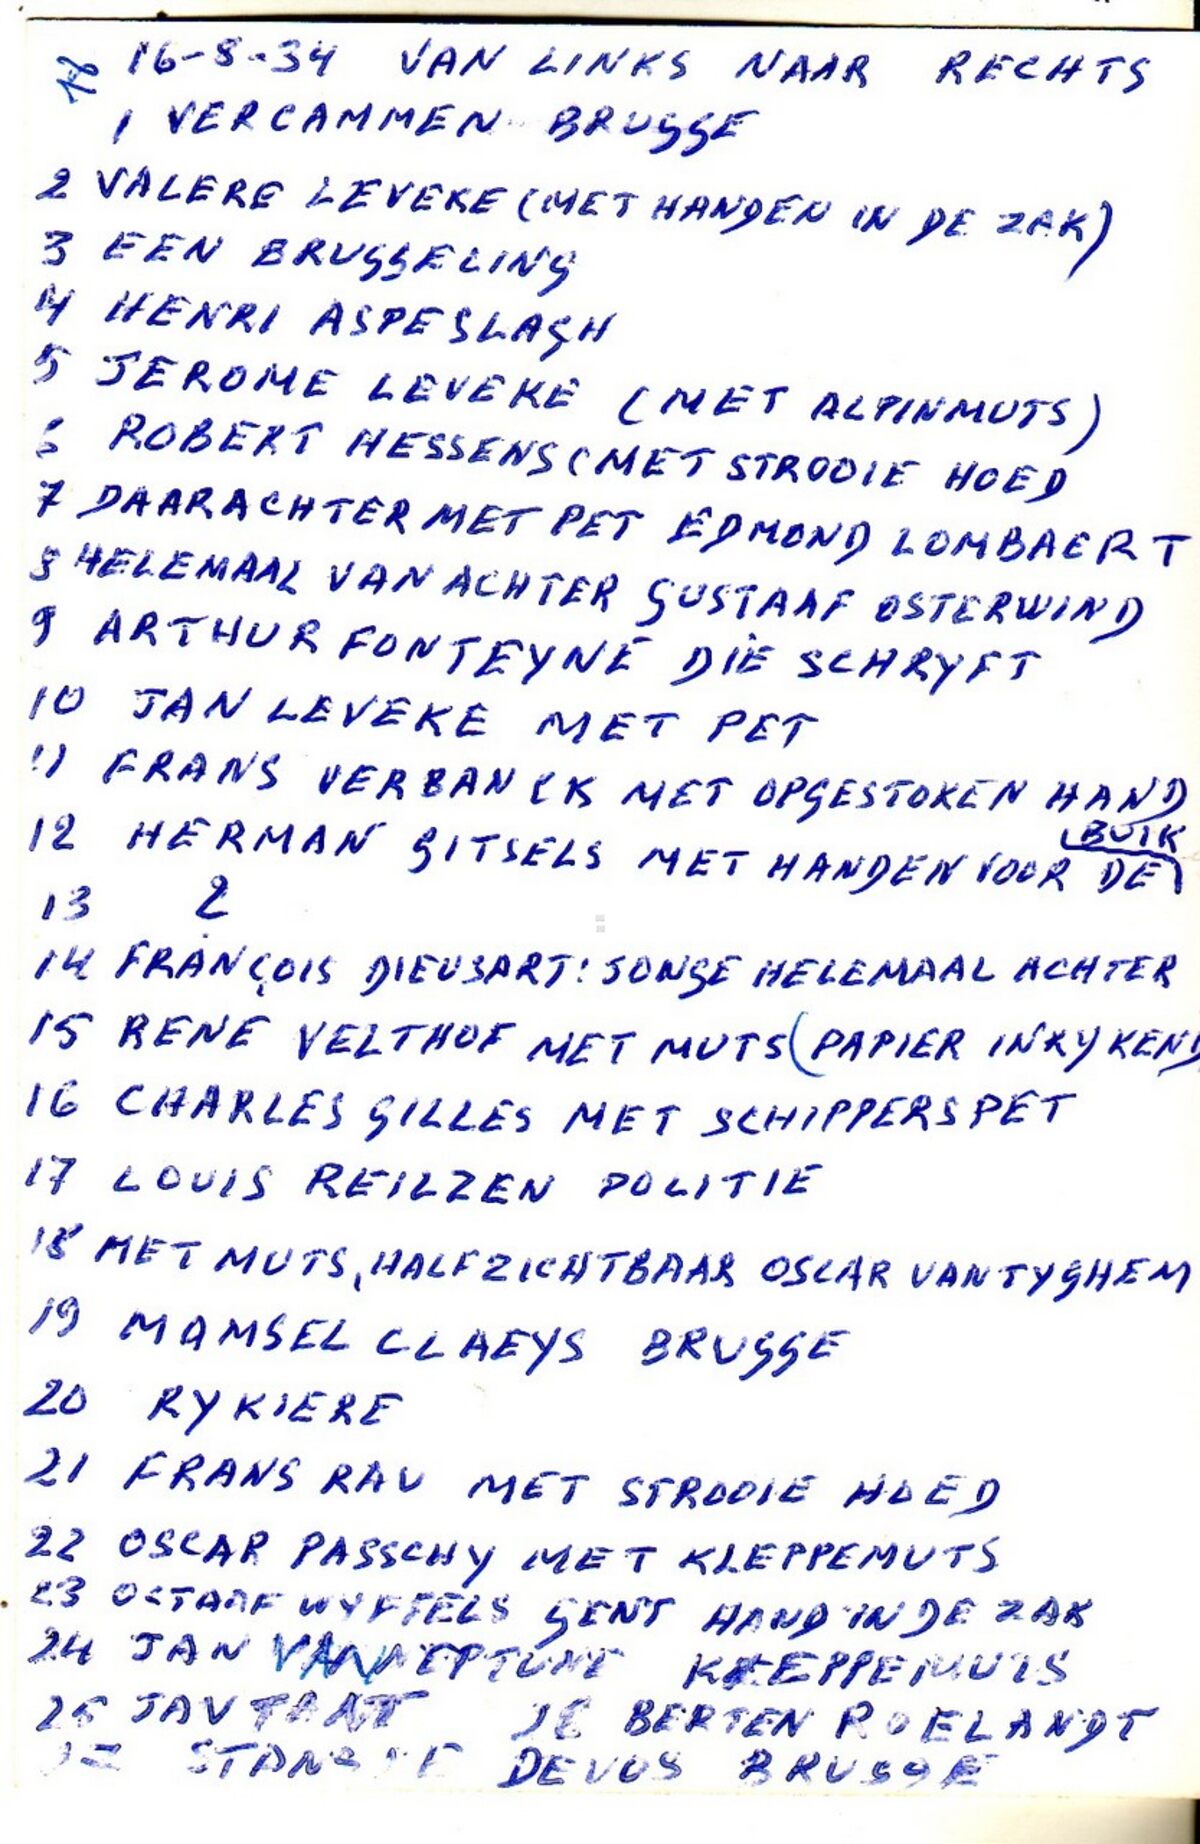 16-8-34 VAN LINKS NAAR RECHTS
1 VERCAMMEN BRUGGE
2 VALERE LEVEKE (MET HANDEN IN DE ZAK)
3 EEN BRUGGELING
4 HENRI ASPESLAGH
5 JEROME LEVEKE (MET ALPINMUTS)
6 ROBERT HESSENS (MET STROOIE HOED
7 DAARACHTER MET PET EDMOND LOMBAERT
8 HELEMAAL VAN ACHTER GUSTAAF OSTERWIND
9 ARTHUR FONTEYNE DIE SCHRYFT
10 JAN LEVEKE MET PET
11 FRANS VERBANCK MET OPGESTOKEN HAND
12 HERMAN GITSELS MET HANDEN VOOR DE BUIK
13 2
14 FRANÇOIS DIEUSART: JONGE HELEMAAL ACHTER
15 RENE VELTHOF MET MUTS (PAPIER INKYKEND)
16 CHARLES GILLES MET SCHIPPERSPET
17 LOUIS REILZEN POLITIE
18 MET MUTS, HALFZICHTBAAR OSCAR VANTYGHEM
19 MAMSEL CLAEYS BRUGGE
20 RYKIERE
21 FRANS RAU MET STROOIE HOED
22 OSCAR PASSCHY MET KLEPPEMUTS
23 OCTAAF WYFFELS GENT HAND IN DE ZAK
24 JAN VAN NEPTUNE KLEPPEMUTS
25 JAV TANT 26 BERTEN ROELANDT
DEVOS BRUGGE